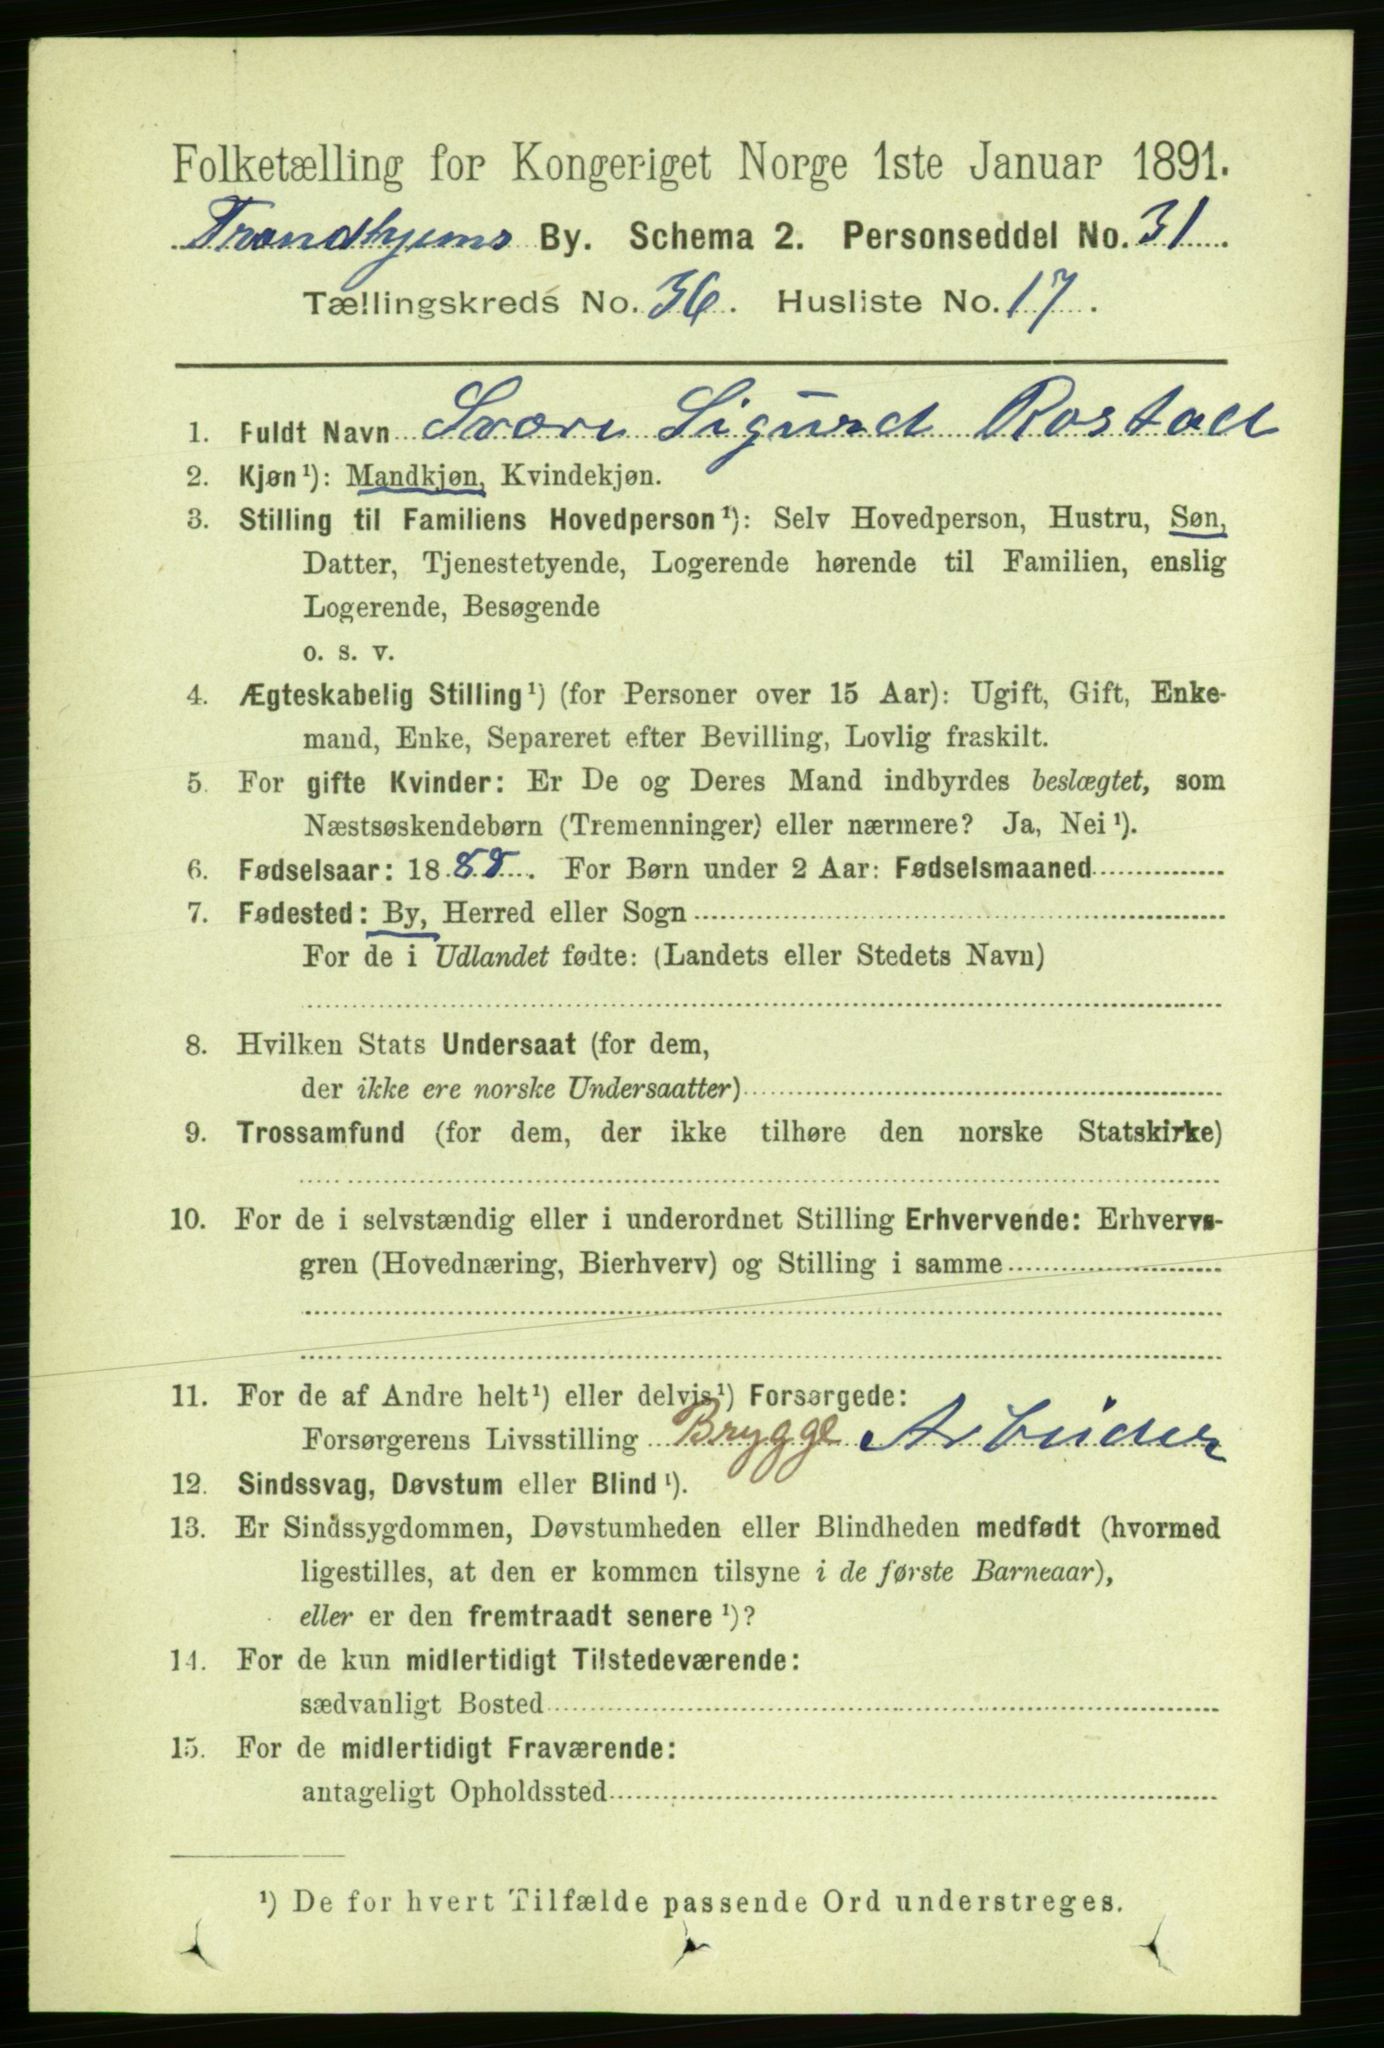 Folketælling for Kongeriget Norge 1ste Januar 1891.
Trondhjems By. Schema 2. Personseddel No. 31.
Tællingskreds No. 36. Husliste No. 17.
1. Fuldt Navn Sigurd Rostad
2. Kjøn¹): Mandkjøn, Kvindekjøn.
3. Stilling til Familiens Hovedperson¹): Selv Hovedperson, Hustru, Søn,
Datter, Tjenestetyende, Logerende hørende til Familien, enslig
Logerende, Besøgende
o. s. v.
4. Ægteskabelig Stilling¹) (for Personer over 15 Aar): Ugift, Gift, Enke-
mand, Enke, Separeret efter Bevilling, Lovlig fraskilt.
5. For gifte Kvinder: Er De og Deres Mand indbyrdes beslægtet, som
Næstsøskendebørn (Tremenninger) eller nærmere? Ja, Nei¹).
6. Fødselsaar: 1888. For Børn under 2 Aar: Fødselsmaaned
7. Fødested: By, Herred eller Sogn
For de i Udlandet fødte: (Landets eller Stedets Navn)
8. Hvilken Stats Undersaat (for dem,
der ikke ere norske Undersaatter)
9. Trossamfund (for dem, der ikke tilhøre den norske Statskirke)
10. For de i selvstændig eller i underordnet Stilling Erhvervende: Erhvervs-
gren (Hovednæring, Bierhverv) og Stilling i samme
11. For de af Andre helt¹) eller delvis¹) Forsørgede:
Forsørgerens Livsstilling Brygge Arbeider
12. Sindssvag, Døvstum eller Blind¹).
13. Er Sindssygdommen, Døvstumheden eller Blindheden medfødt (hvormed
ligestilles, at den er kommen tilsyne i de første Barneaar),
eller er den fremtraadt senere¹)?
14. For de kun midlertidigt Tilstedeværende:
sædvanligt Bosted
15. For de midlertidigt Fraværende:
antageligt Opholdssted
¹) De for hvert Tilfælde passende Ord understreges.